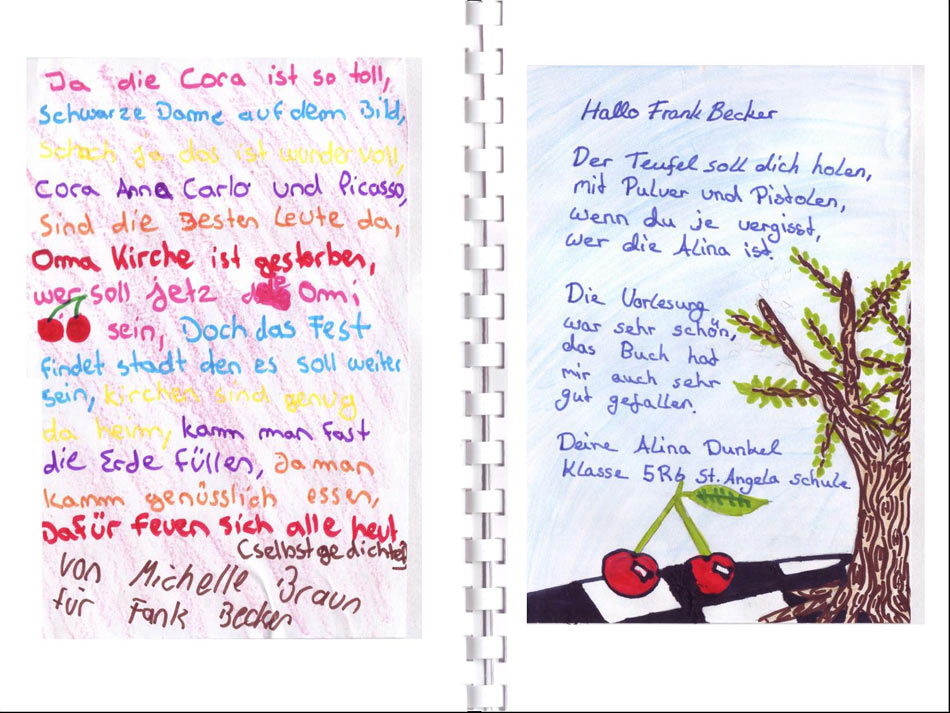 Ja die Cora ist so toll,
Schwarze Dame auf dem Bild,
Schach ja das ist wundervoll,
Cora Anna Carlo und Picasso,
Sind die Besten Leute da,
Omma Kirche ist gestorben,
wer soll jetz die Omi
sein, Doch das Fest
findet stadt den es soll weiter
sein, kirchen sind genug
da heim, kamm man fast
die Erde füllen, Da man
kamm genüsslich essen,
Dafür feuen sich alle heut
(selbstgedichtet)
von Michelle Braun
für Fank Becker
Hallo Frank Becker
Der Teufel soll dich holen,
mit Pulver und Pistolen,
wenn du je vergisst,
wer die Alina ist.
Die Vorlesung
war sehr schön,
das Buch hat
mir auch sehr
gut gefallen.
Deine Alina Dunkel
Klasse 5R6 St. Angela schule